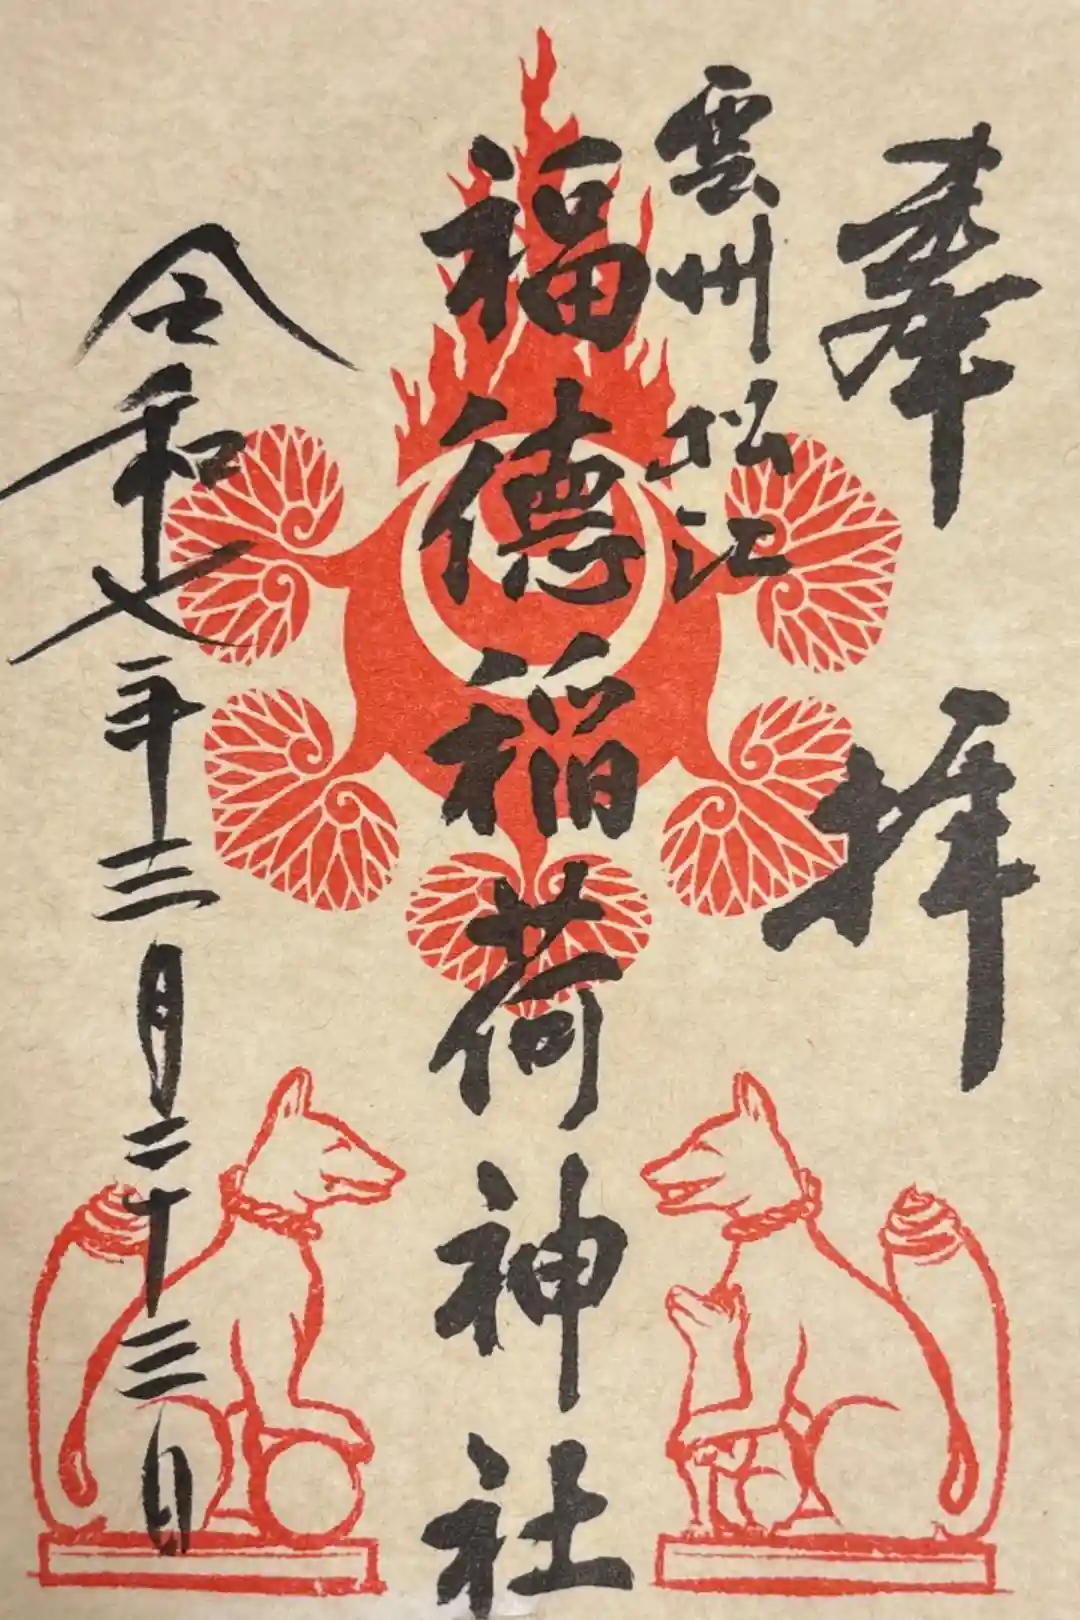 奉拝
雲州松江
福徳稲荷神社
令和七年三月二十三日